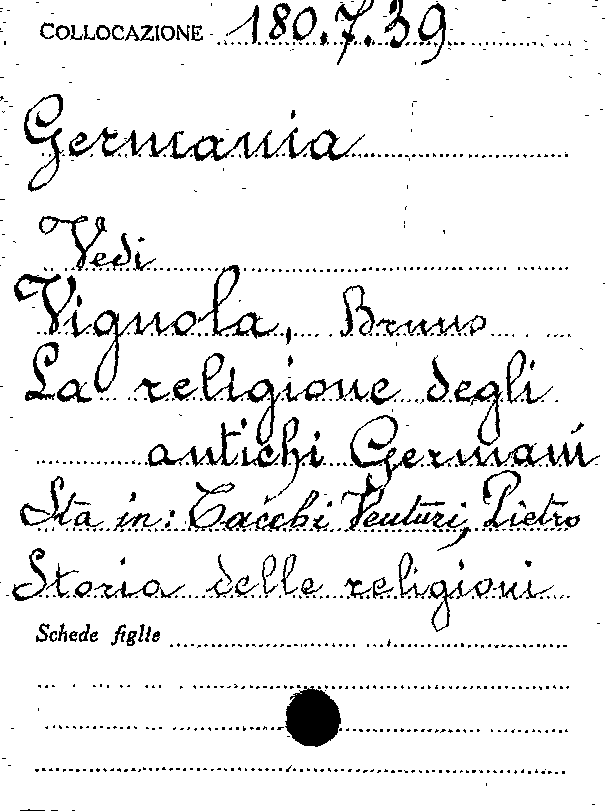 COLLOCAZIONE 180.7.39
Germania
Vedi
Vignola, Bruno
La religione degli
antichi Germani
Sta in: Tacchi Venturi, Pietro
Storia delle religioni
Schede figlie